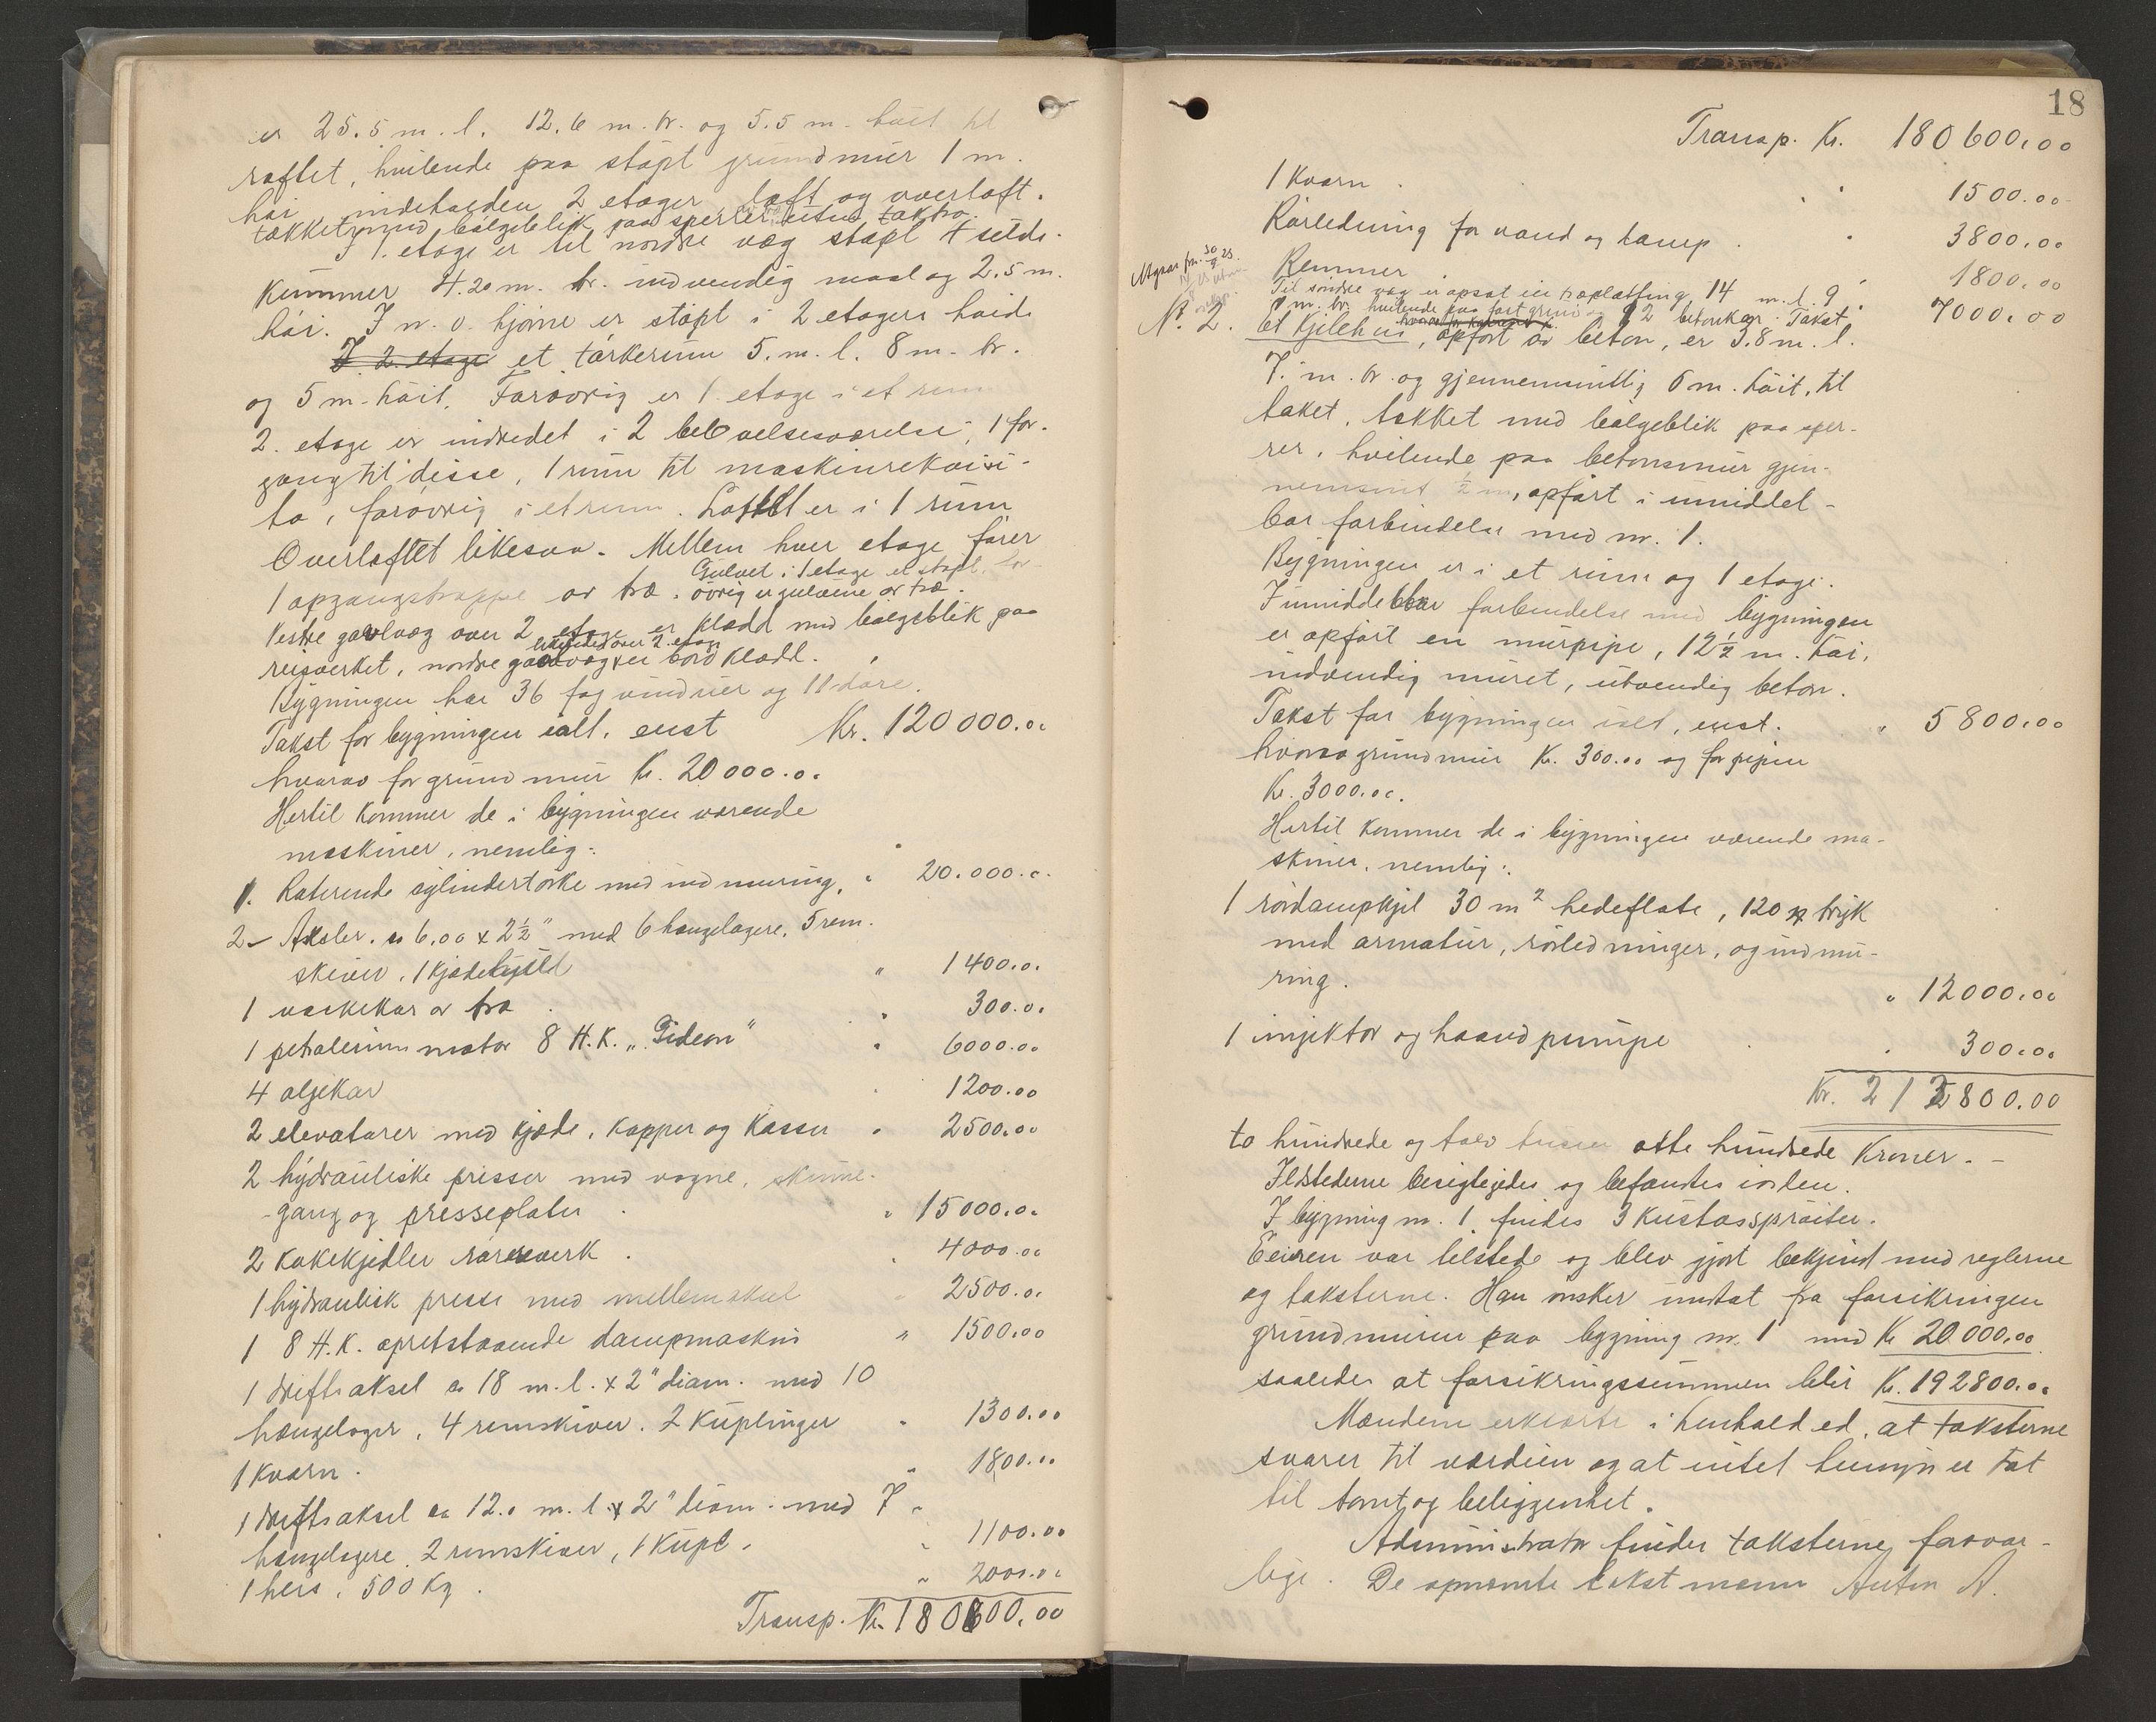 er 25.5 m. l. 12.6 m. br. og 5.5 m. höit til
raftet, hvilende paa stöpt grundmur 1 m.
höi indeholder 2 etager loft og overloft.
tækket med bölgeblik paa sperrer uten taktro.
I 1. etage er til nordre væg stöpt 4 silde-
kummer 4.20 m. br. indvendig maal og 2.5 m.
höi. I n. ö. hjörne er stöpt i 2 etagers höide
I 2. etage et törkerum 5. m. l. 8 m. br.
og 5 m. höit. Forövrig er 1. etage i et rum
2. etage er indredet i 2 beboelsesværelser, 1 for-
gang til disse, 1 rum til maskinrekvisi-
ta, forövrig i et rum. Loftet er i 1 rum
Overloftet likesaa. Mellem hver etage förer
1 opgangstrappe av træ. Gulvet i 1 etage er stöpt, for-
övrig er gulvene av træ.
Vestre gavlvæg over 2 etage er klædd med bölgeblik paa
reisverket, nordre gavlvæg likeledes over 2. etage er bord klædd.
Bygningen har 36 fag vinduer og 11 döre.
Takst for bygningen ialt, enst Kr. 120000.00
hvorav for grundmur Kr. 20000.00
Hertil kommer de i bygningen værende
maskiner, nemlig:
1. Roterende cylindertörke med indmuring, " 20.000.00
2 Aksler. a 6,00 x 2½" med 6 hængelagere, 5 rem-
skiver, 1 kjædehjul " 1400.00
1 vaskekar av træ " 300.00
1 petroleumsmotor 8 H.K. „Gideon" " 6000.00
4 oljekar 1200.00
2 elevatorer med kjæde, kopper og kasser " 2500.00
2 hydrauliske presser med vogne, skinne-
gang og presseplater " 15000.00
2 kokekjedler röreverk 4000.00
1 hydraulisk presse med 2500.00
1 8 H.K. opretstaaende dampmaskin " 1500.00
1 driftsaksel ca 18 m. l. x 2" diam. med 10
hængelager, 4 remskiver. 2 kuplinger " 1300.00
1 kværn. " 1800.00
1 driftsaksel ca 12.0 m. l. x 2" diam. med 7
hængelagere, 2 remskiver, 1 kupl. " 1100.00
1 heis, 500 kg. " 2000.00
Transp. Kr. 180600.00
18
Transp. Kr. 180600.00
1 kværn 1500.00
Rörledning for vand og damp " 3800.00
Remmer 1800.00
Til söndre væg er opsat en træplatting, 14 m. l. 9
m. br. hvilende paa fast grund og 12 betonkar. Takst " 7000.00
No. 2. Et kjelehus, opfört av beton, er 3.8 m. l.
7. m. br. og gjennemsnitlig 6 m. höit, til
taket, tækket med bölgeblik paa sper-
rer, hvilende paa betonsmur gjen-
nemsnit ½ m, opfört i umiddel-
bar forbindelse med nr. 1.
Bygningen er i et rum og 1 etage.
I umiddelbar forbindelse med bygningen
er opfört en murpipe, 12½ m. höi,
indvendig muret, utvendig beton.
Takst for bygningen ialt, enst. " 5800.00
hvorav grundmur Kr. 300.00 og for pipen
Kr. 3000.00.
Hertil kommer de i bygningen værende ma-
skiner, nemlig:
1 rördampkjel 30 m² hedeflate, 120 tryk
med armatur, rörledninger, og indmu-
ring. " 12000.00
1 injektor og haandpumpe 300.00
Kr. 212800.00
to hundrede og tolv tusen otte hundrede Kroner.-
Ildstederne besigtigedes og befandtes i orden.
I bygning nr. 1 findes 3 Kustosspröiter.
Eieren var tilstede og blev gjort bekjendt med reglerne
og taksterne. Han önsker undtat fra forsikringen
grundmuren paa bygning nr. 1 med Kr 20000.00
saaledes at forsikringssummen blir Kr. 192800.00
Mændene erklærte i henhold ed, at taksterne
svarer til værdien og at intet hensyn er tat
til tomt og beliggenhet.
Administrator finder taksterne forsvar-
lige. De opnævnte takstmænn Anton A.